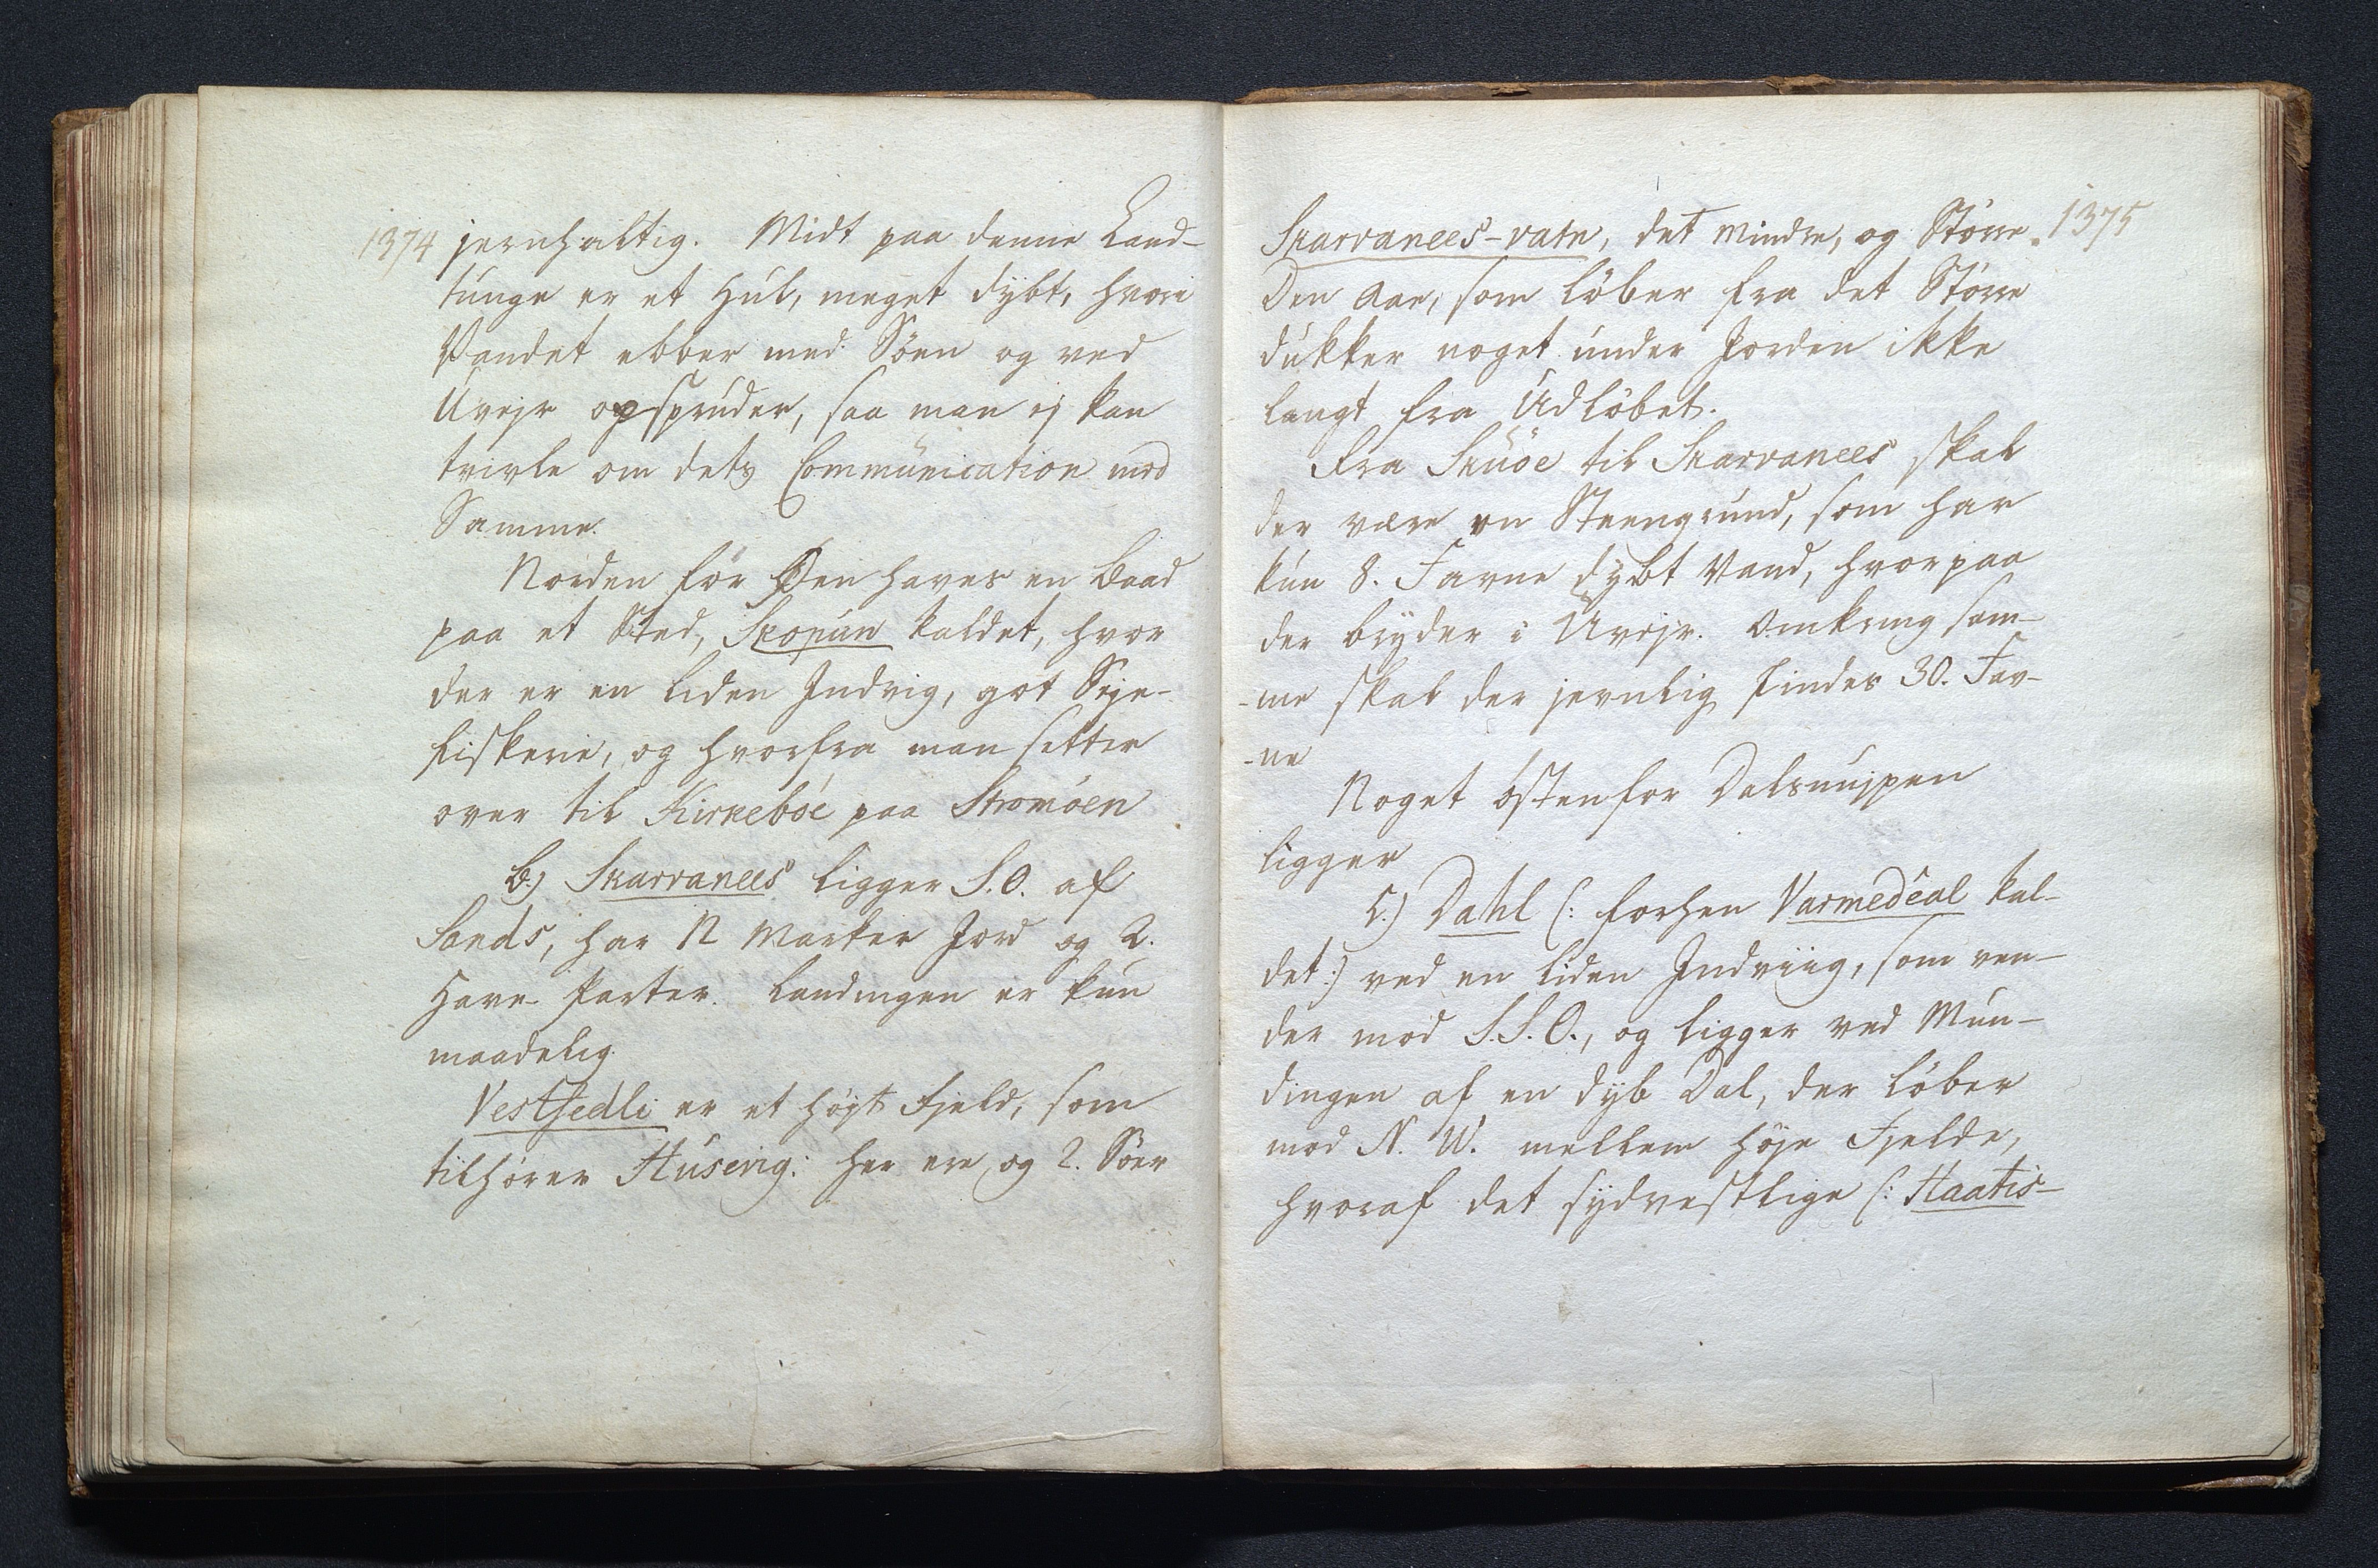 1374 jernhaltig. Midt paa denne Land-
tunge er et Hul, meget dybt, hvori
Vandet ebber med Söen og ved
Uvejr opspruder, saa man ej kan
tvivle om dets Communication med
Samme.
Norden før Øen haves en Baad
paa et Sted, Skopun kaldet, hvor
der er en liden Indvig, got Seje-
fiskerie, og hvorfra man setter
over til Kirkeböe paa Strömöen
B.) Skarvanees ligger S.O. af
Sands, har 12 Marker Jord og 2.
Have-Parter. Landingen er kun
maadelig.
Vestfjedli er et höjt Fjeld, som
tilhörer Husevig: her ere og 2. Söer
Skarvanees-vatn, det Mindre, og Större. 1375
Den Aae, som löber fra det Större
dukker noget under Jorden ikke
langt fra Udlöbet.
Fra Skuöe til Skarvanees skal
der være en Steengrund, som har
kun 8. Favne dybt Vand, hvorpaa
der bryder i Uvejr. Omkring sam-
-me skal der jevnlig findes 30. Fav-
-ne
Noget östenfor Dalsnujpen
ligger
C.) Dahl (: forhen Varmedeal kal-
det:) ved en liden Indviig, som ven-
der mod S.S.O., og ligger ved Mun-
dingen af en dyb Dal, der löber
mod N. W. mellem höje Fjelde,
hvoraf det sydvestlige (: Haatis-